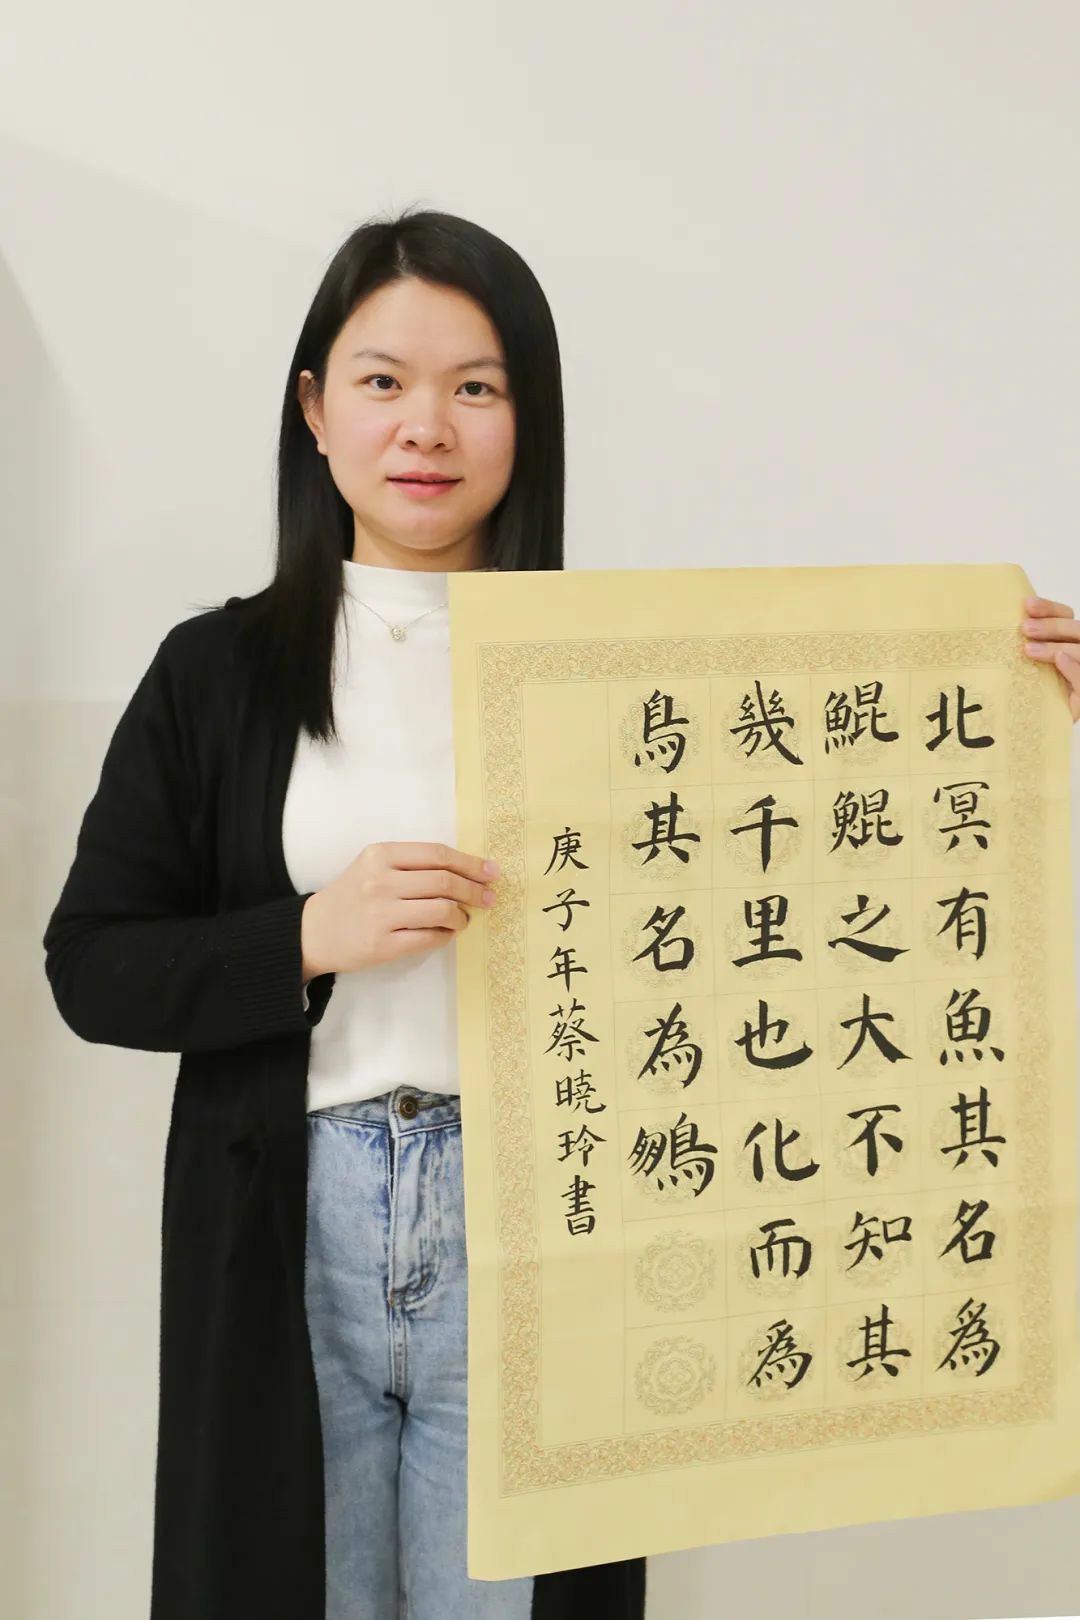 北冥有魚其名爲
鯤鯤之大不知其
幾千里也化而爲
鳥其名為鵬
庚子年蔡曉玲書